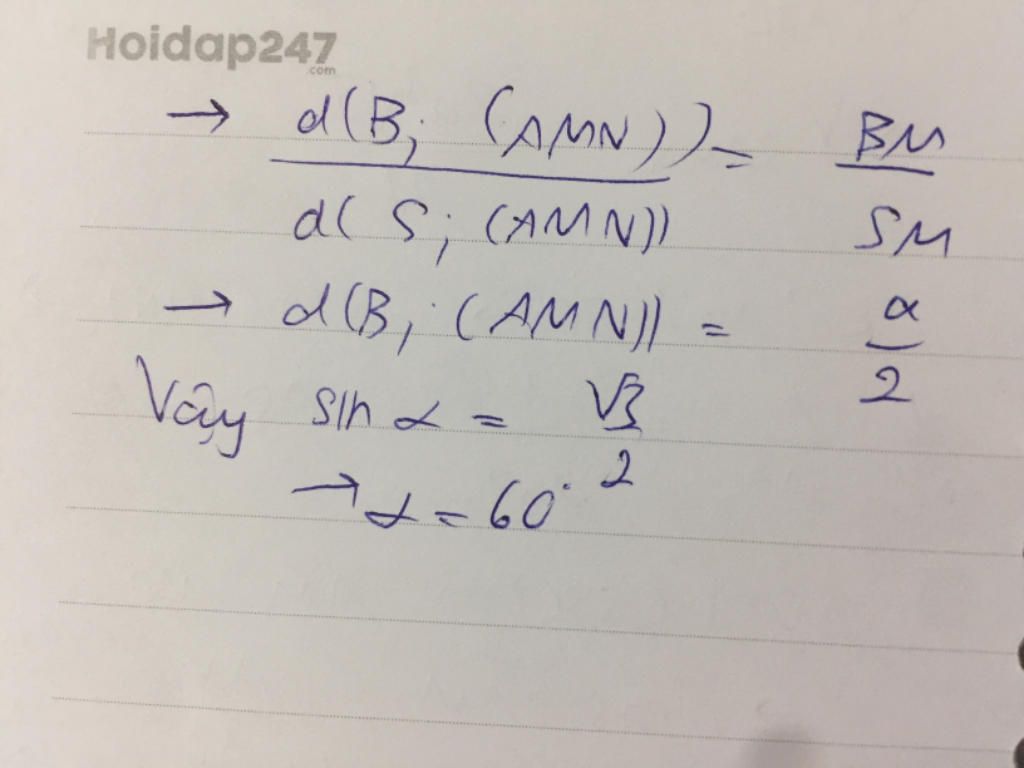 Hoidap247
.com
→ d(B; (AMN)) / d(S; (AMN)) = BM / SM
→ d(B; (AMN)) = α / 2
Vậy sin α = √3 / 2
→ α = 60°